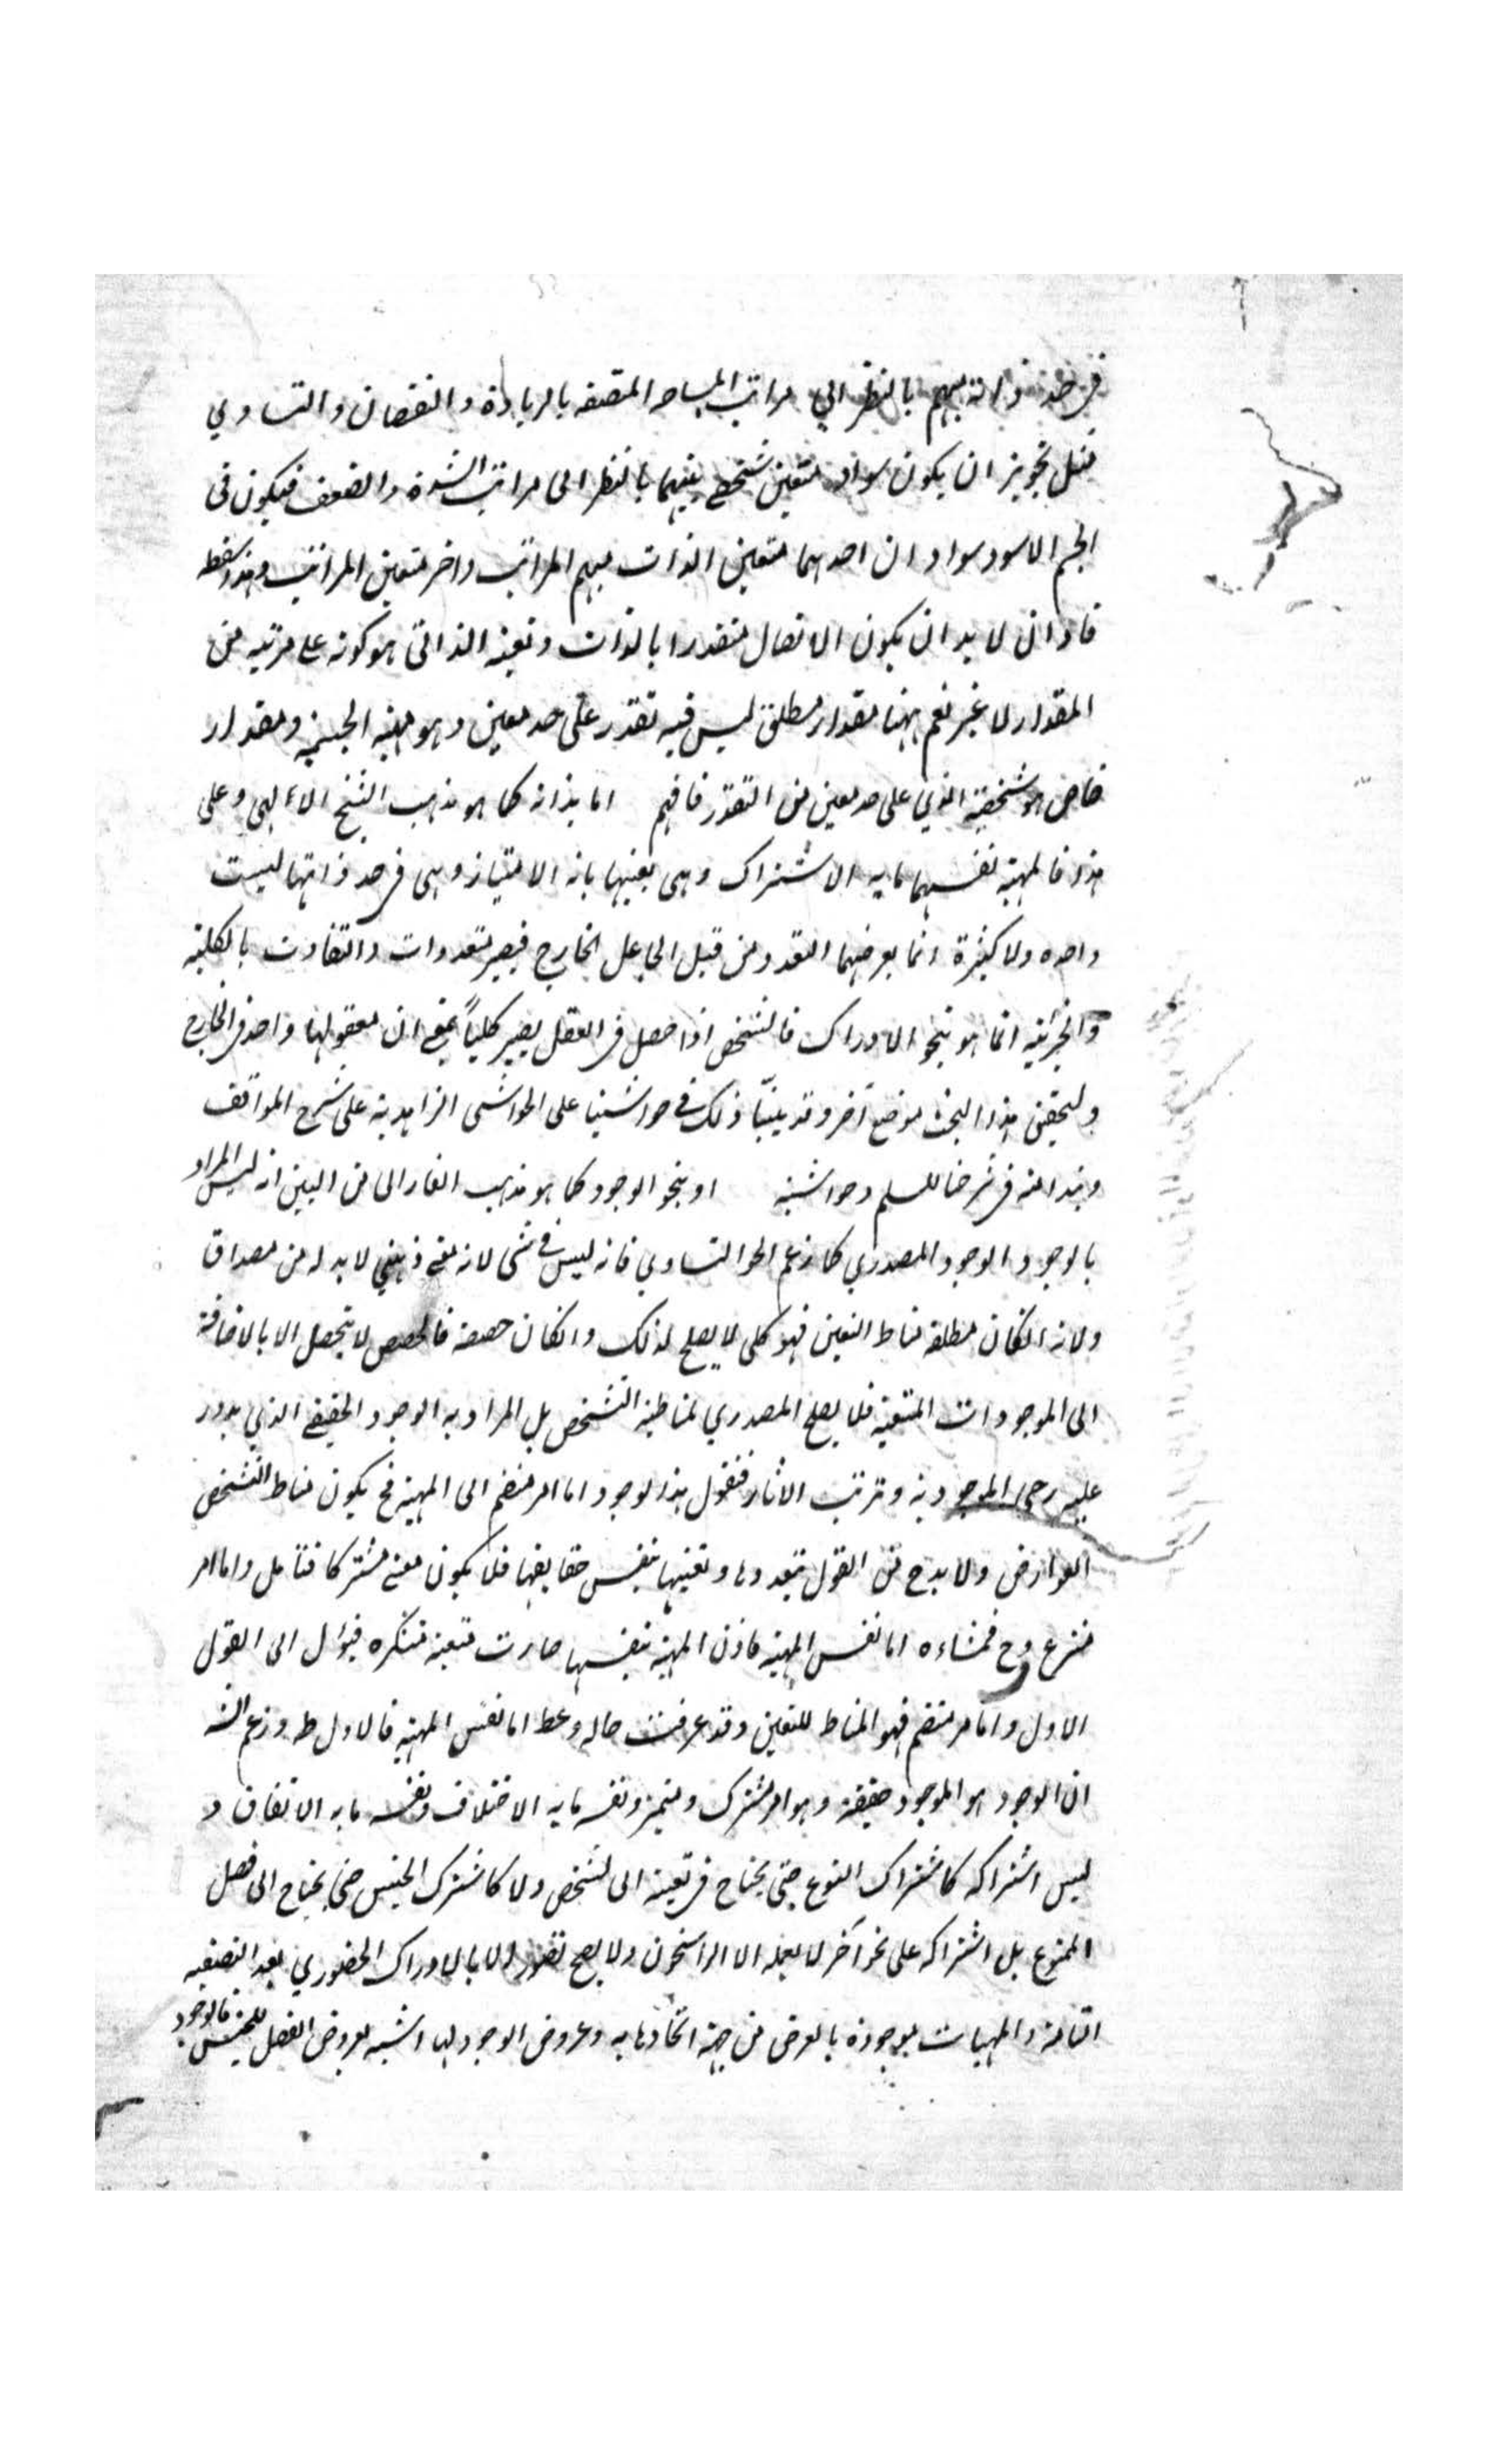 فى حد ذاته مبهم بالنظر الى مراتب المساحه المتصفه بالزيادة والنقصان والتساوي
مثل تجويز ان يكون سواد متعين شخصى مبهما بالنظر الى مراتب الشدة والضعف فيكون فى
الجسم الاسود سوادان احدهما متعين الذات مبهم المراتب واخر متعين المراتب وهذا سفسطه
فاذن لا بد ان يكون الاتصال متقدرا بالذات وتعينه الذاتى هو كونه على مرتبه من
المقدار لا غير نعم ههنا مقدار مطلق ليس فيه تقدر على حد معين وهو مهية الجسميه ومقدار
خاص هو شخصيته الذي على حد معين من التقدر فافهم اما بذاته كما هو مذهب الشيخ الالهى وعلى
هذا فالمهية نفسها ما به الاشتراك وهى بعينها ما به الامتياز وهى فى حد ذاتها ليست
واحده ولا كثيرة انما يعرضها التعدد من قبل الجاعل الخارج فيصير متعددات والتفاوت بالكلية
والجزئية انما هو بنحو الادراك فالشخص اذا حصل فى العقل يصير كلياً بمعنى ان معقولها واحد فى الخارج
ولتحقيق هذا البحث موضع آخر وقد بينّا ذلك فى حواشينا على الحواشى الزاهدية على شرح المواقف
ونبذا منه فى شرحنا للسلم وحواشيه او بنحو الوجود كما هو مذهب الفارابى من البين انه ليس المراد
بالوجود الوجود المصدري كما زعم المحقق فانه ليس فى شى لانه معنى ذهني لا بد له من مصداق
ولانه انكان مطلقه مناط التعين فهو كلى لا يصلح لذلك وانكان حصصه فالحصص لا تحصل الا بالاضافة
الى الموجودات المتعينة فلا يصلح المصدري لمناطية التشخص بل المراد به الوجود الحقيقى الذي يدور
عليه رحى الموجودية وترتب الآثار فنقول هذا الوجود اما امر منضم الى المهية فح يكون مناط التشخص
العوارض ولا بد ح من القول بتعددها وتعينها بنفس حقايقها فلا يكون معنى مشتركا فتامل واما امر
منتزع وح فمنشاءه اما نفس المهية فاذن المهية بنفسها صارت متعينة متكثره فيؤل الى القول
الاول واما امر منضم فهو المناط للتعين وقد عرفت حاله وعط اما نفس المهية فالاول ط وزعم
ان الوجود هو الموجود حقيقة وهو امر مشترك ومتميز ونفسه ما به الاختلاف ونفسه ما به الاتفاق و
ليس اشتراكه كاشتراك النوع حتى يحتاج فى تعينه الى تشخص ولا كاشتراك الجنس حتى يحتاج الى فصل
المنوع بل اشتراكه على نحو آخر لا يعلمه الا الراسخون ولا يصح تصوره الا بالادراك الحضوري بعد التصفيه
التامة والمهيات موجودة بالعرض من جهة اتحادها به وعروض الوجود لها اشبه بعروض الفصل للجنس فالوجود